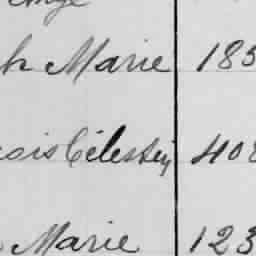 Ange
h Marie 185
çois Célestin 408
Marie 123